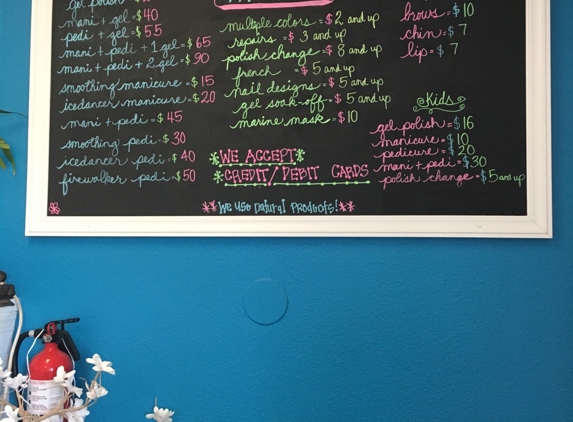 gel polish
mani + gel = $40
pedi + gel = $55
mani + pedi + 1 gel = $65
mani + pedi + 2 gel = $90
smoothing manicure = $15
icedancer manicure = $20
mani + pedi = $45
smoothing pedi = $30
icedancer pedi = $40
firewalker pedi = $50
multiple colors = $2 and up
repairs = $3 and up
polish change = $8 and up
french = $5 and up
nail designs = $5 and up
gel soak-off = $5 and up
marine mask = $10
WE ACCEPT
CREDIT/DEBIT CARDS
We use natural products!
brows = $10
chin = $7
lip = $7
Kids
gel polish = $16
manicure = $10
pedicure = $20
mani + pedi = $30
polish change = $5 and up